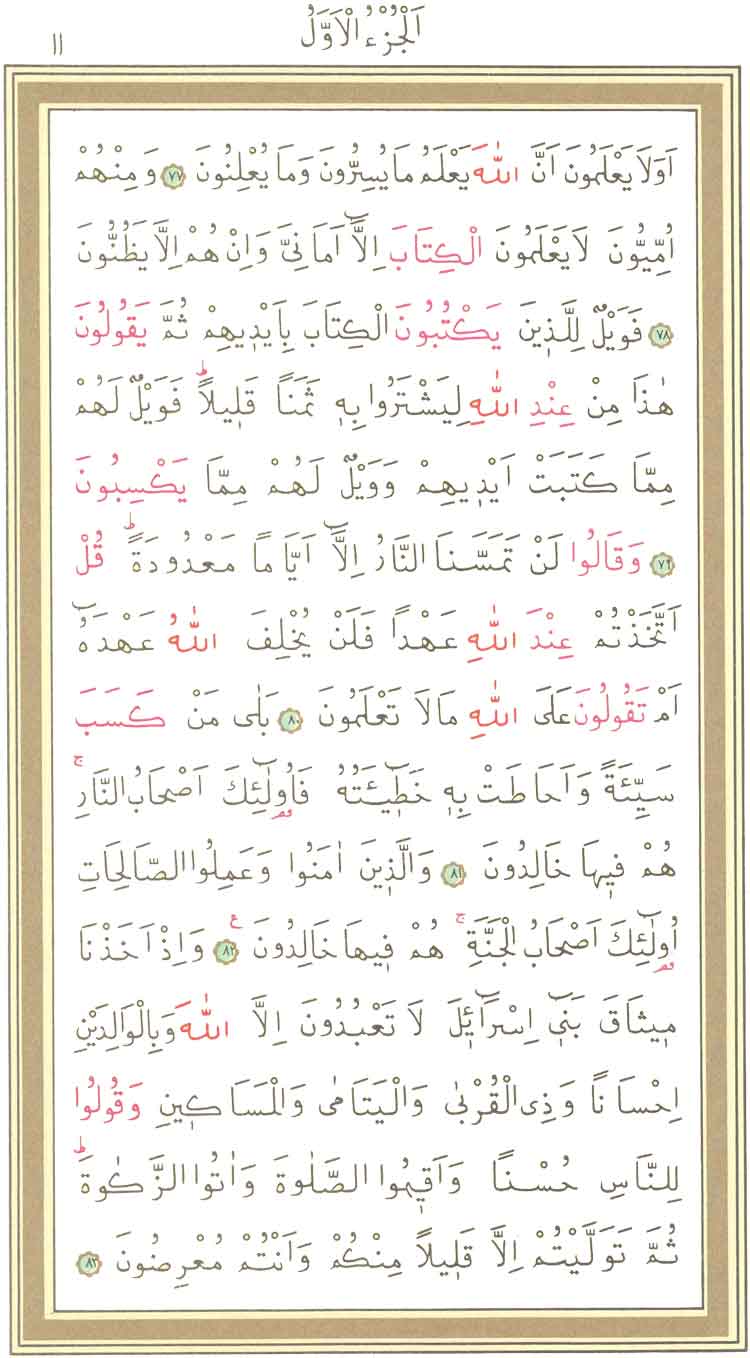 اَلْجُزْءُ الْاَوَّلُ
١١
اَوَلَا يَعْلَمُونَ اَنَّ اللّٰهَ يَعْلَمُ مَا يُسِرُّونَ وَمَا يُعْلِنُونَ ٧٧ وَمِنْهُمْ
اُمِّيُّونَ لَا يَعْلَمُونَ الْكِتَابَ اِلَّٓا اَمَانِيَّ وَاِنْ هُمْ اِلَّا يَظُنُّونَ
٧٨ فَوَيْلٌ لِلَّذ۪ينَ يَكْتُبُونَ الْكِتَابَ بِاَيْد۪يهِمْ ثُمَّ يَقُولُونَ
هٰذَا مِنْ عِنْدِ اللّٰهِ لِيَشْتَرُوا بِه۪ ثَمَنًا قَل۪يلًاۜ فَوَيْلٌ لَهُمْ
مِمَّا كَتَبَتْ اَيْد۪يهِمْ وَوَيْلٌ لَهُمْ مِمَّا يَكْسِبُونَ
٧٩ وَقَالُوا لَنْ تَمَسَّنَا النَّارُ اِلَّٓا اَيَّامًا مَعْدُودَةًۜ قُلْ
اَتَّخَذْتُمْ عِنْدَ اللّٰهِ عَهْدًا فَلَنْ يُخْلِفَ اللّٰهُ عَهْدَهُٓ
اَمْ تَقُولُونَ عَلَى اللّٰهِ مَالَا تَعْلَمُونَ ٨٠ بَلٰى مَنْ كَسَبَ
سَيِّئَةً وَاَحَاطَتْ بِه۪ خَط۪ٓيـَٔتُهُ فَاُو۬لٰٓئِكَ اَصْحَابُ النَّارِۚ
هُمْ ف۪يهَا خَالِدُونَ ٨١ وَالَّذ۪ينَ اٰمَنُوا وَعَمِلُوا الصَّالِحَاتِ
اُو۬لٰٓئِكَ اَصْحَابُ الْجَنَّةِۚ هُمْ ف۪يهَا خَالِدُونَ ٨٢ ع وَاِذْ اَخَذْنَا
م۪يثَاقَ بَن۪ٓي اِسْرَٓائ۪لَ لَا تَعْبُدُونَ اِلَّا اللّٰهَ وَبِالْوَالِدَيْنِ
اِحْسَانًا وَذِي الْقُرْبٰى وَالْيَتَامٰى وَالْمَسَاك۪ينِ وَقُولُوا
لِلنَّاسِ حُسْنًا وَاَق۪يمُوا الصَّلٰوةَ وَاٰتُوا الزَّكٰوةَۜ
ثُمَّ تَوَلَّيْتُمْ اِلَّا قَل۪يلًا مِنْكُمْ وَاَنْتُمْ مُعْرِضُونَ ٨٣